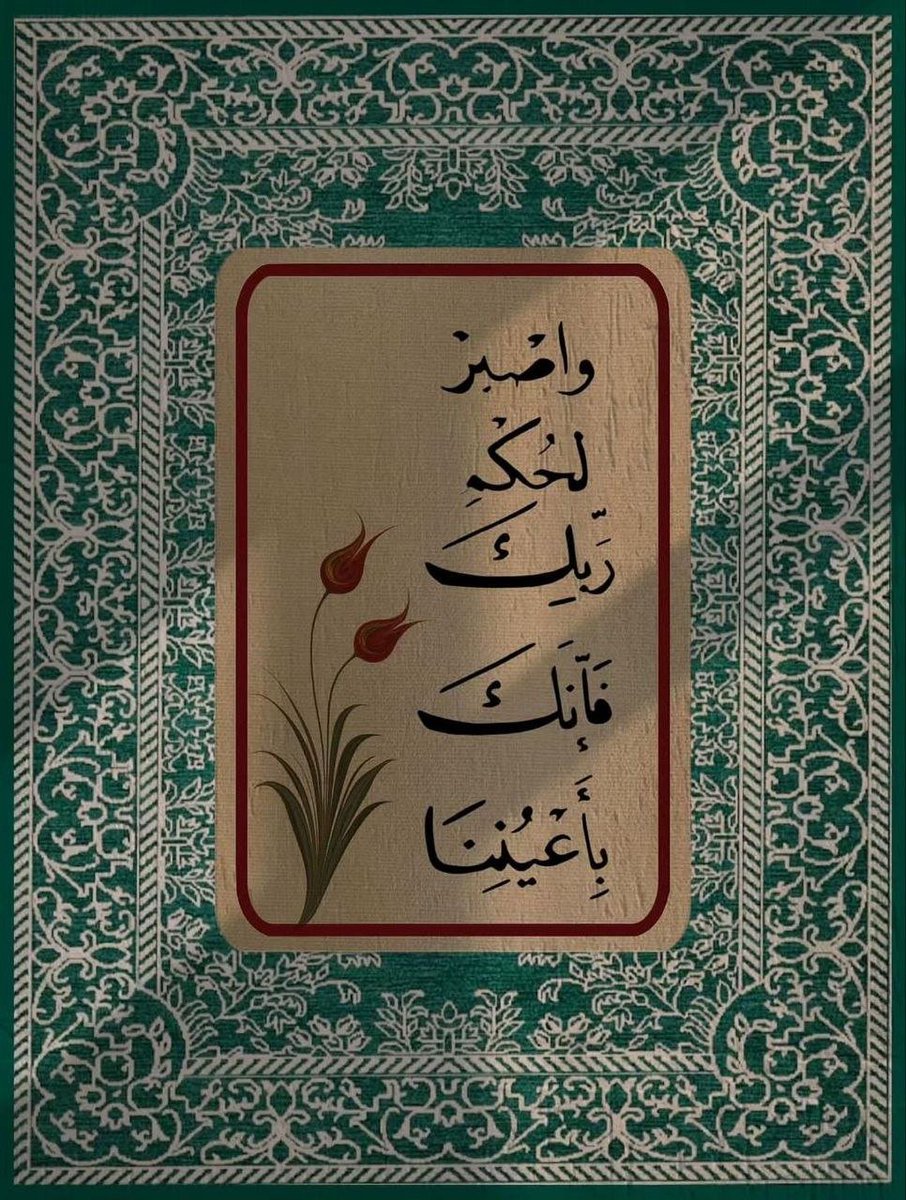 واصْبِرْ
لحُكْمِ
رَبِّكَ
فَإَنَّكَ
بِأَعْيُنِنَا